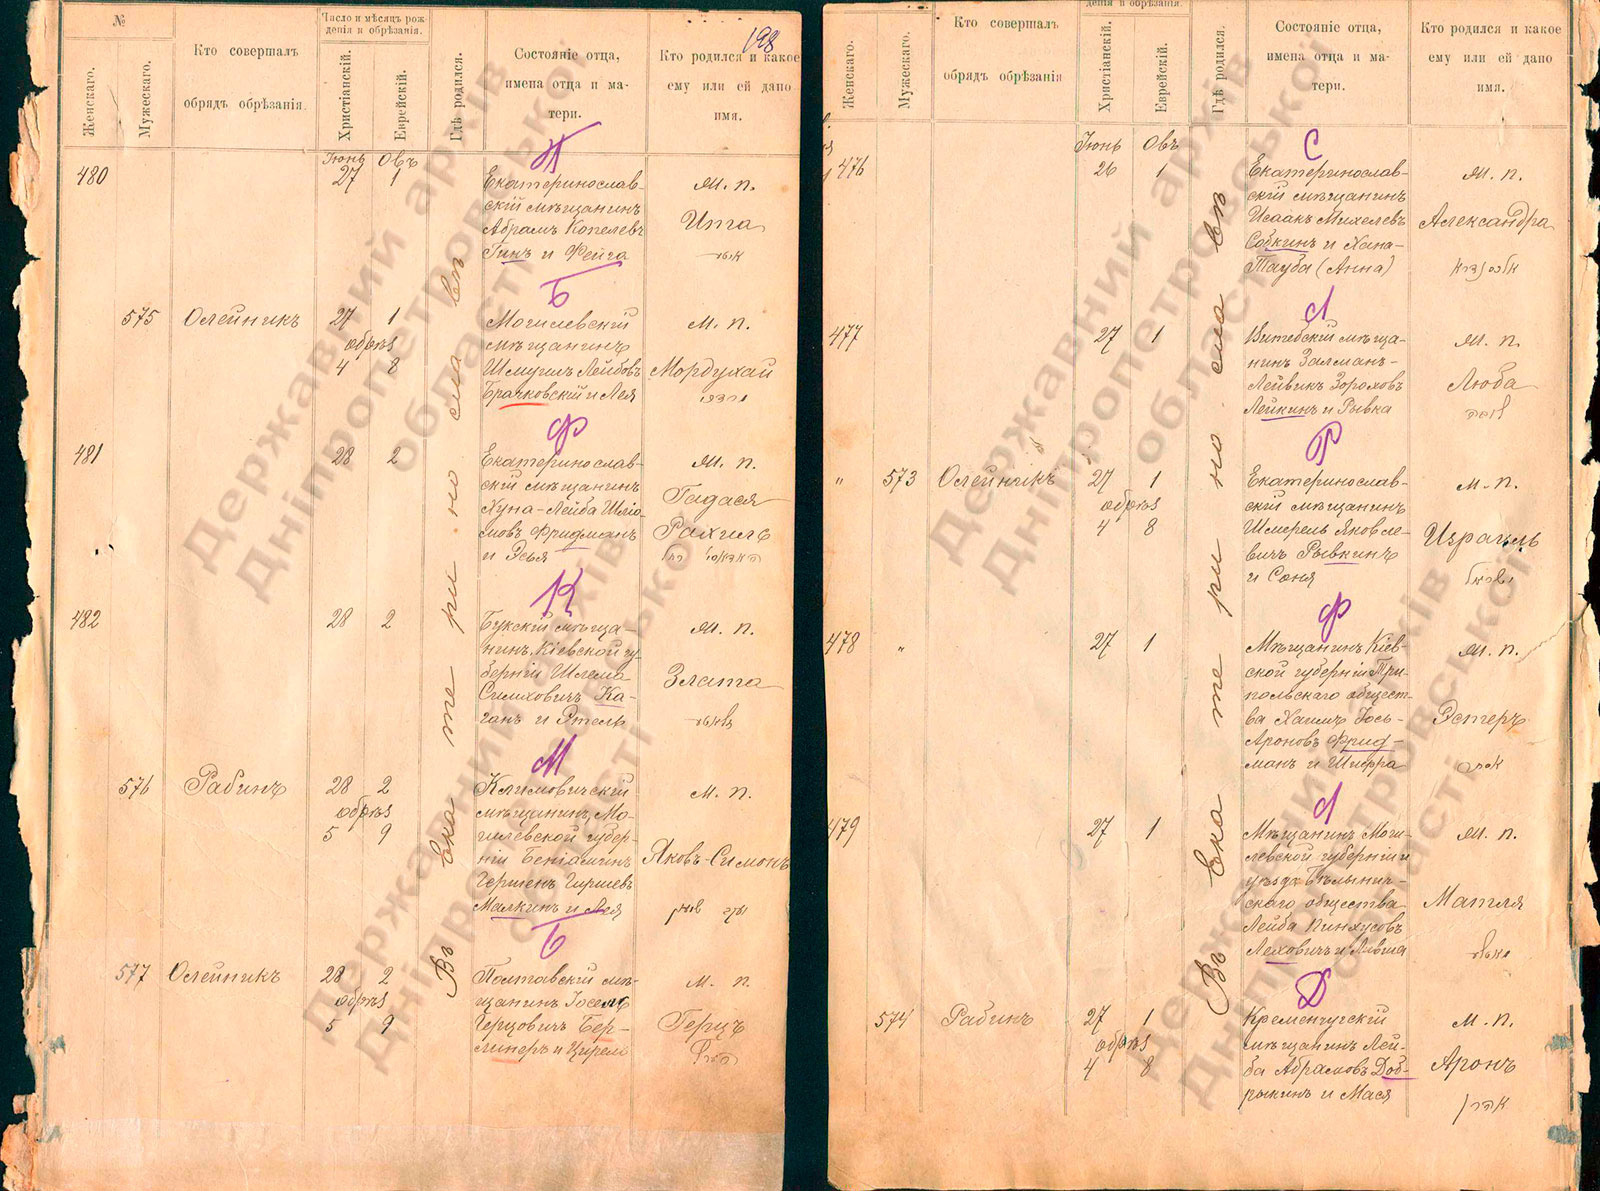 №
Женскаго.
Мужескаго.
Кто совершалъ
обрядъ обрѣзанія.
Число и мѣсяцъ рож-
денія и обрѣзанія.
Христіанскій.
Еврейскій.
Гдѣ родился.
Состояніе отца,
имена отца и ма-
тери.
Кто родился и какое
ему или ей дано
имя.
198
Въ Екатеринославѣ
480
Іюнь Овъ
27 1
Екатеринослав-
скій мѣщанинъ
Абрамъ Копелевъ
Гинъ и Фейга
М. п.
Ита
575
Олейникъ
27 1
обрѣз
4 8
Б
Могилевскій
мѣщанинъ
Шмуилъ Лейбовъ
Брачковскій и Лея
М. п.
Мордухай
481
28 2
Ф
Екатеринослав-
скій мѣщанинъ
Хуна-Лейба Шлио-
мовъ Фридманъ
и Эсья
М. п.
Гадася
Рахиль
482
28 2
К
Букскій мѣща-
нинъ, Кіевской гу-
берніи Шлема
Симховичъ Ка-
ганъ и Этель
М. п.
Злата
576
Рабинъ
28 2
обрѣз
5 9
М
Климовичскій
мѣщанинъ, Мо-
гилевской губер-
ніи Беніаминъ
Гершенъ Гиршевъ
Малкинъ и Лея
М. п.
Яковъ-Симонъ
577
Олейникъ
28 2
обрѣз
5 9
Б
Полтавскій мѣ-
щанинъ Іосель
Герцовичъ Бер-
линеръ и Цирель
М. п.
Герцъ
Женскаго.
Мужескаго.
Кто совершалъ
обрядъ обрѣзанія
денія и обрѣзанія.
Христіанскій.
Еврейскій.
Гдѣ родился.
Состояніе отца,
имена отца и ма-
тери.
Кто родился и какое
ему или ей дано
имя.
Въ Екатеринославѣ
476
Іюнь Овъ
26 1
С
Екатеринослав-
скій мѣщанинъ
Исаакъ Михелевъ
Собкинъ и Хана-
Тауба (Анна)
М. п.
Александра
477
27 1
Л
Витебскій мѣща-
нинъ Залманъ-
Лейвикъ Зороховъ
Лейкинъ и Рывка
М. п.
Люба
" 573
Олейникъ
27 1
обрѣз
4 8
Р
Екатеринослав-
скій мѣщанинъ
Шмерель Яковле-
вичъ Рывкинъ
и Соня
М. п.
Израиль
478 "
27 1
Ф
Мѣщанинъ Кіев-
ской губерніи Три-
польскаго общест-
ва Хаимъ Іось-
Ароновъ Фрид-
манъ и Шифра
М. п.
Эстеръ
479
27 1
Л
Мѣщанинъ Моги-
левской губерніи и
уѣзда Бѣлынич-
скаго общества
Лейба Пинхусовъ
Леховичъ и Ливша
М. п.
Матля
574
Рабинъ
27 1
обрѣз
4 8
Д
Кременчугскій
мѣщанинъ Лей-
ба Абрамовъ Доб-
рыкинъ и Мася
М. п.
Аронъ
אהרן
Державний архів
Дніпропетровської
області